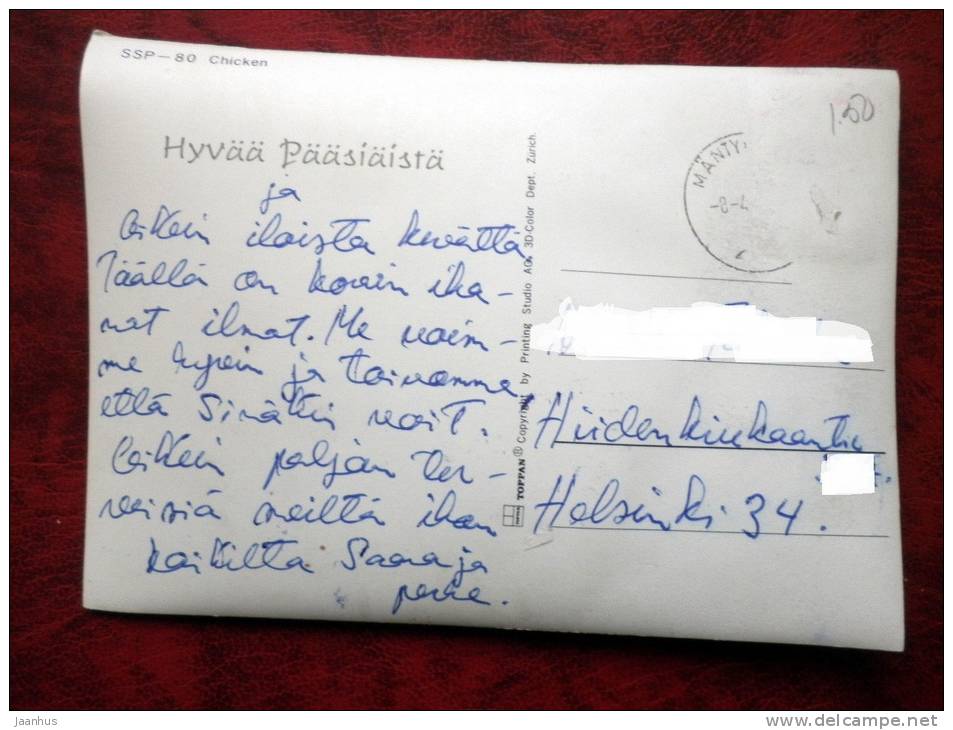 SSP-80 Chicken
1.50
Hyvää Pääsiäistä
ja
Oikein iloista kevättä
Täällä on kovin iha-
nat ilmat. Me voim-
me hyvin ja toivomme,
että Sinäkin voit.
Oikein paljon ter-
veisiä meiltä ihan
kaikilta. Saara ja
perhe.
TOPPAN® Copyright by Printing Studio AG, 3D-Color Dept. Zürich.
MÄNTY
Hiidenkiukaantie
Helsinki 34.
Jaanhus
www.delcampe.net